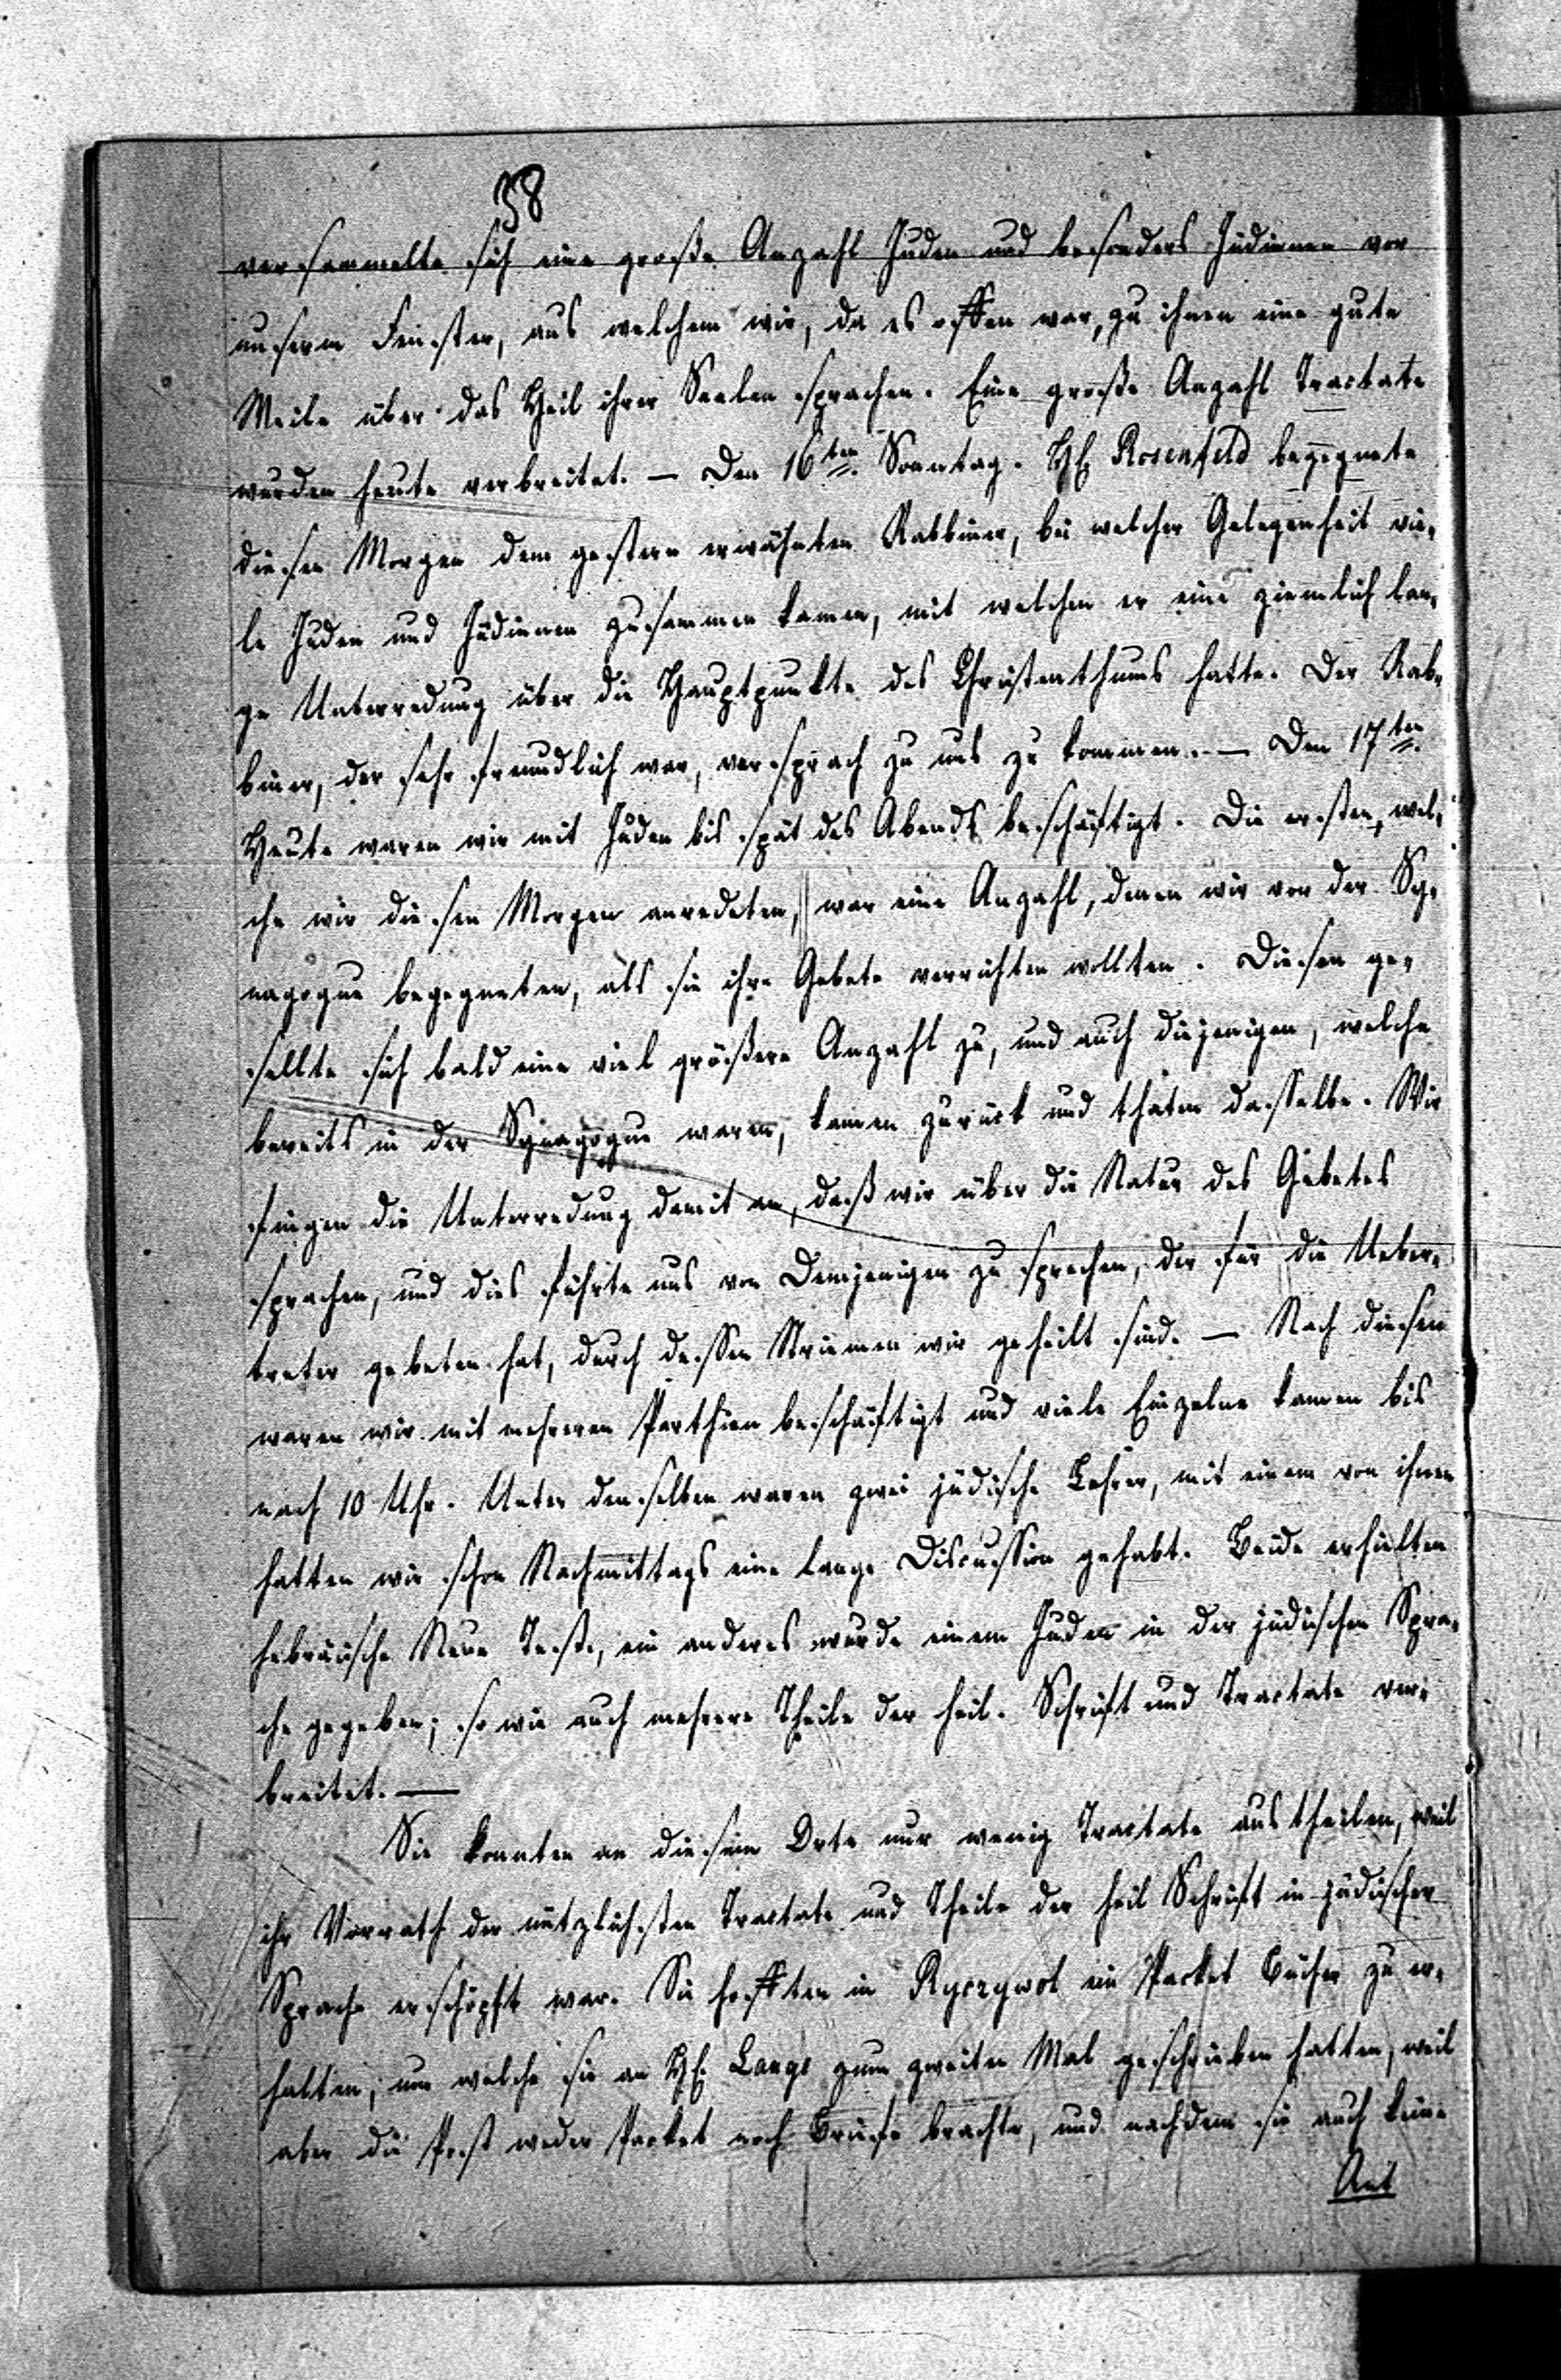 38
versammelte sich eine große Anzahl Juden und besonders Jüdinnen vor
unserm Fenster, aus welchem wir, da es offen war, zu ihnen eine gute
Weile über das Heil ihrer Seelen sprachen. Eine große Anzahl Tractate
wurden heute verbreitet. — Den 16ten Sonntag. H. Rosenfeld begegnete
diesen Morgen dem gestern erwähnten Rabbiner, bei welcher Gelegenheit vie-
le Juden und Jüdinnen zusammen kamen, mit welchen er eine ziemlich lan-
ge Unterredung über die Hauptpunkte des Christenthums hatte. Der Rab-
biner, der sehr freundlich war, versprach zu uns zu kommen. — Den 17ten
Heute waren wir mit Juden bis spät des Abends beschäftigt. Die ersten, wel-
che wir diesen Morgen anredeten, war eine Anzahl, denen wir vor der Sy-
nagogue begegneten, als sie ihre Gebete verrichten wollten. Diesen ge-
sellte sich bald eine viel größere Anzahl zu, und auch diejenigen, welche
bereits in der Synagogue waren, kamen zurück und thaten dasselbe. Wir
fingen die Unterredung damit an, daß wir über die Natur des Gebetes
sprachen, und dies führte uns von Demjenigen zu sprechen, der für die Ueber-
treter gebeten hat, durch dessen Striemen wir geheilt sind. — Nach diesen
waren wir mit mehreren Parthien beschäftigt und viele Einzelne kamen bis
nach 10 Uhr. Unter denselben waren zwei jüdische Lehrer, mit einem von ihnen
hatten wir schon Nachmittags eine lange Discussion gehabt. Beide erhielten
hebräische Neue Test., ein anderes wurde einem Juden in der jüdischen Spra-
che gegeben; so wie auch mehrere Theile der heil. Schrift und Tractate ver-
breitet. —
Sie konnten an diesem Orte nur wenig Tractate austheilen, weil
ihr Vorrath der nützlichsten Tractate und Theile der heil Schrift in jüdischer
Sprache erschöpft war. Sie hofften in Ryczywol ein Packet Bücher zu er-
halten, um welche sie an H. Lange zum zweiten Mal geschrieben hatten, weil
aber die Post weder Packet noch Briefe brachte, und nachdem sie auch keine
Ant